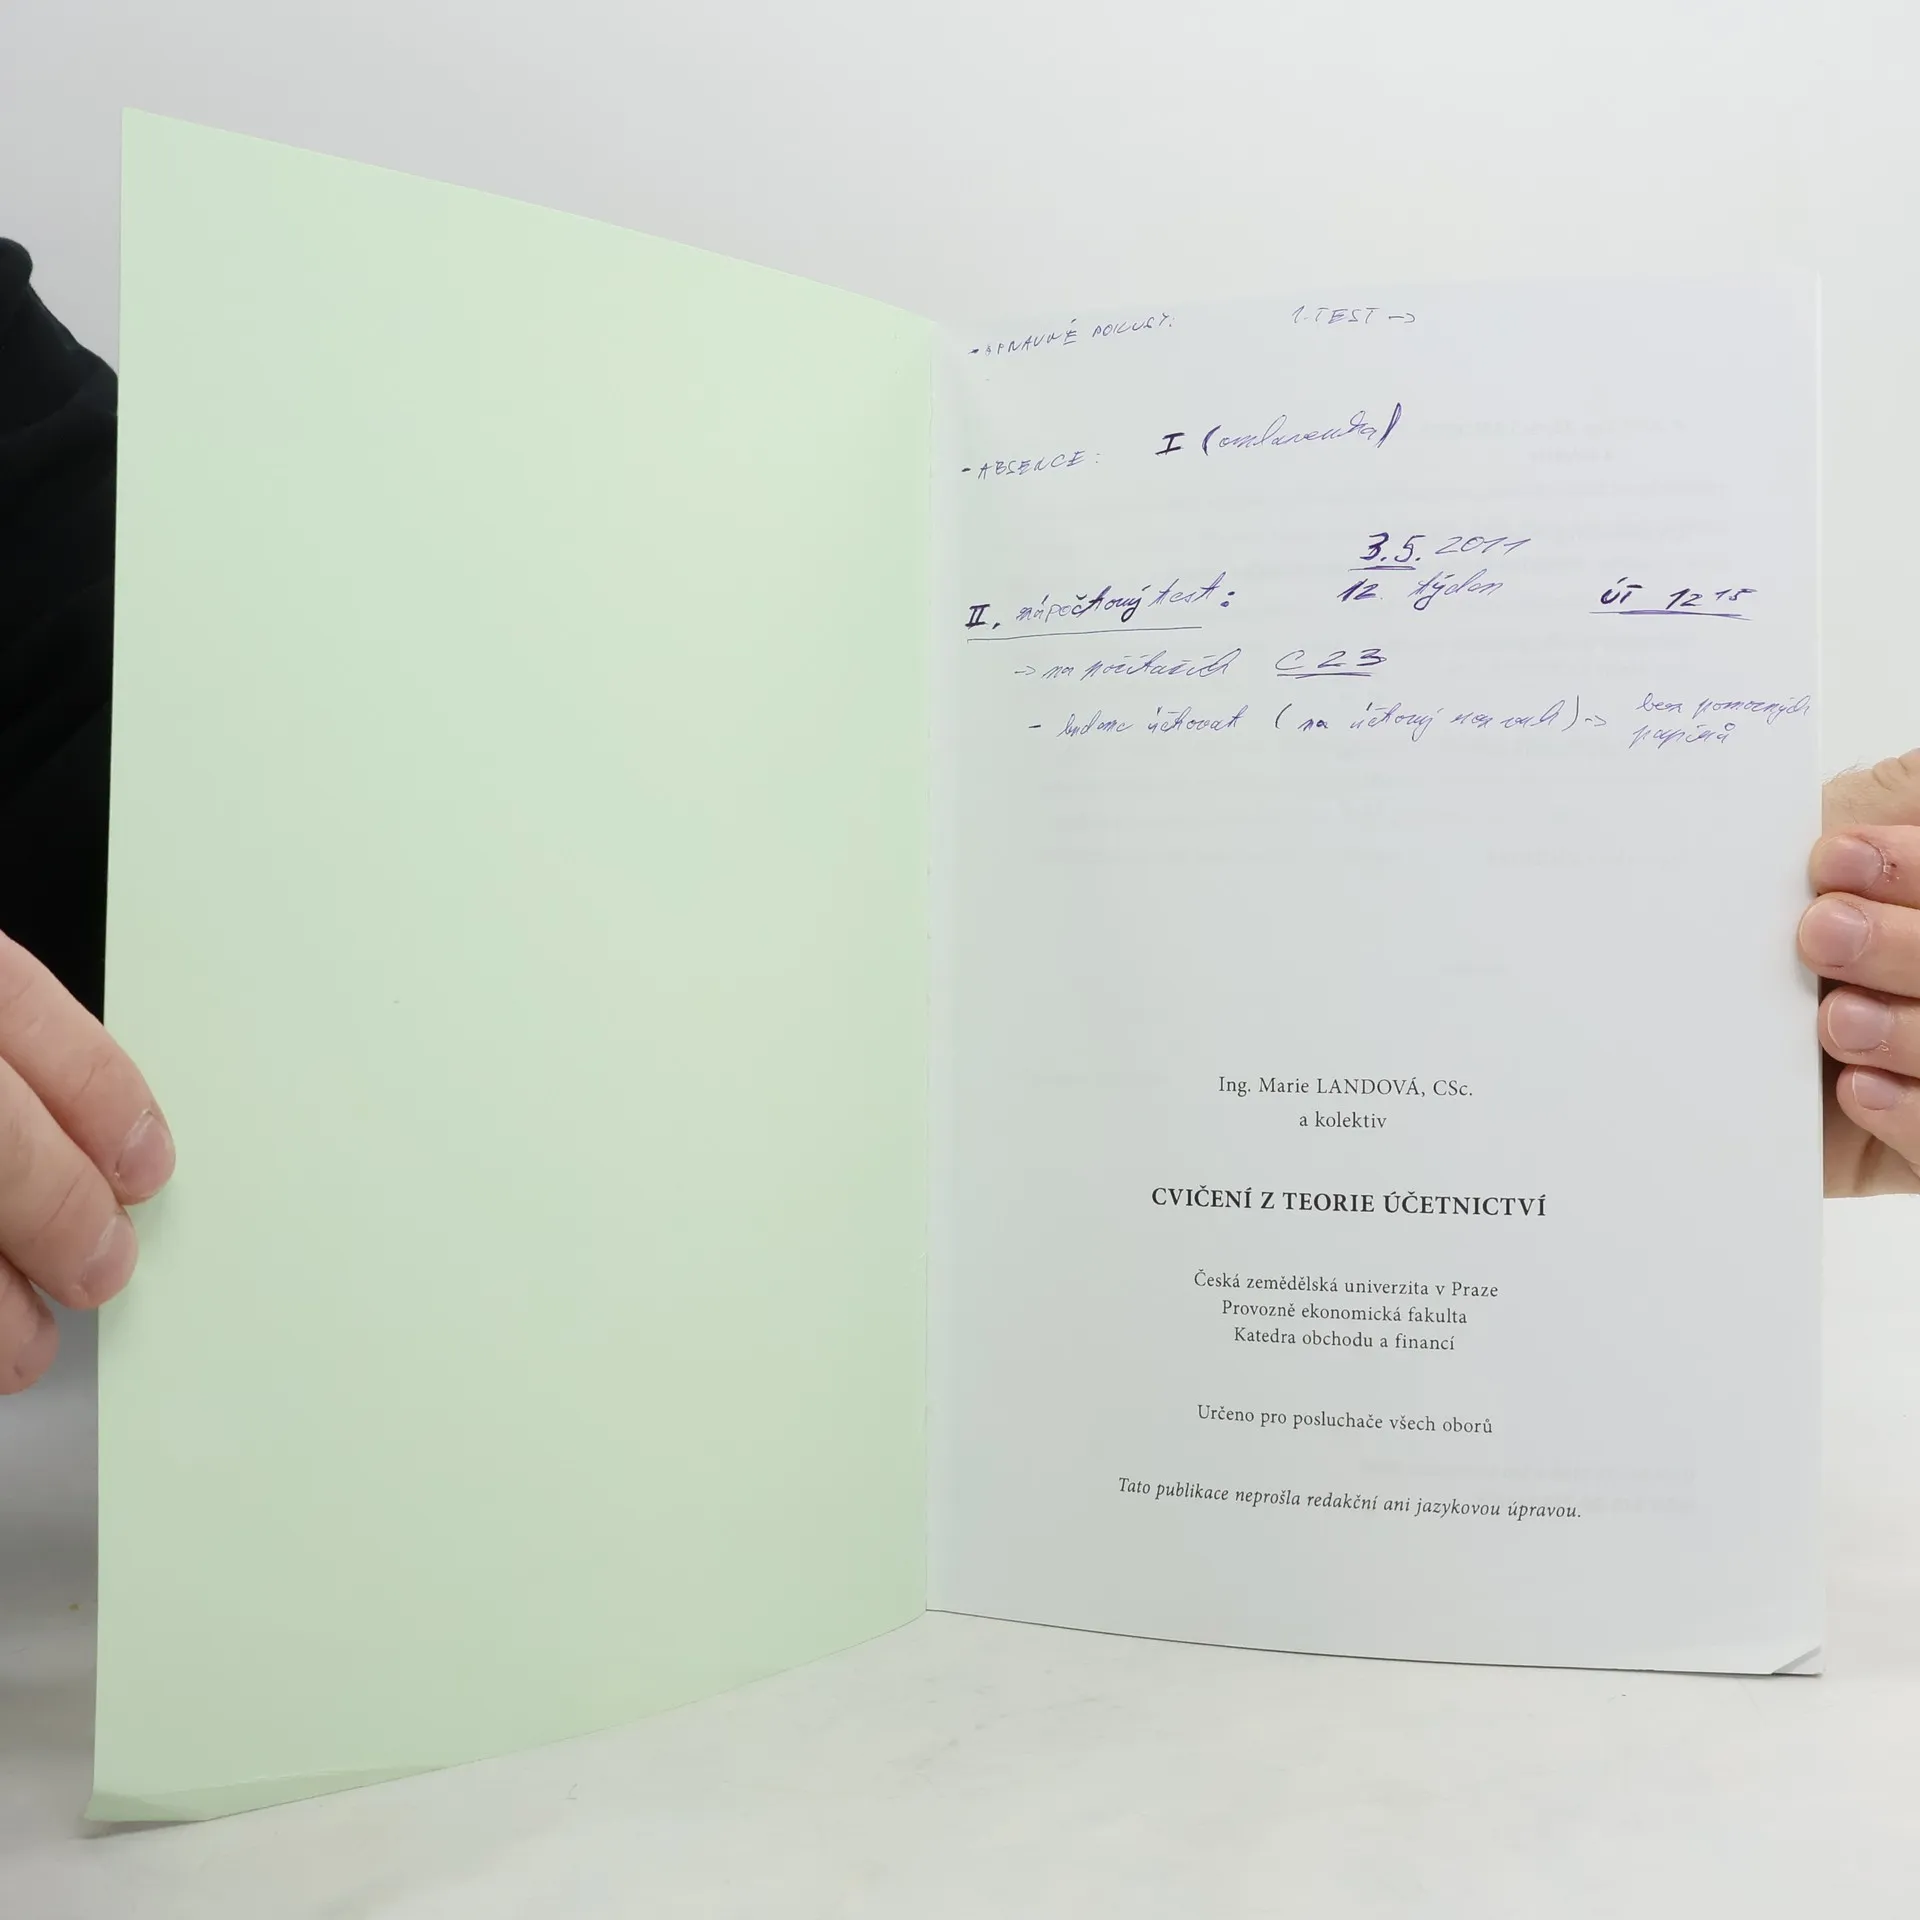 - SPRAVNÉ POKUSY: 1. TEST ->
- ABSENCE: I (omluvenka)
3.5. 2011
II. zápočtový test: 12. týden ÚT 12 15
-> na počítačích C 23
- budeme účtovat ( na účtový rozvrh ) -> bez pomocných
papírů
Ing. Marie LANDOVÁ, CSc.
a kolektiv
CVIČENÍ Z TEORIE ÚČETNICTVÍ
Česká zemědělská univerzita v Praze
Provozně ekonomická fakulta
Katedra obchodu a financí
Určeno pro posluchače všech oborů
Tato publikace neprošla redakční ani jazykovou úpravou.